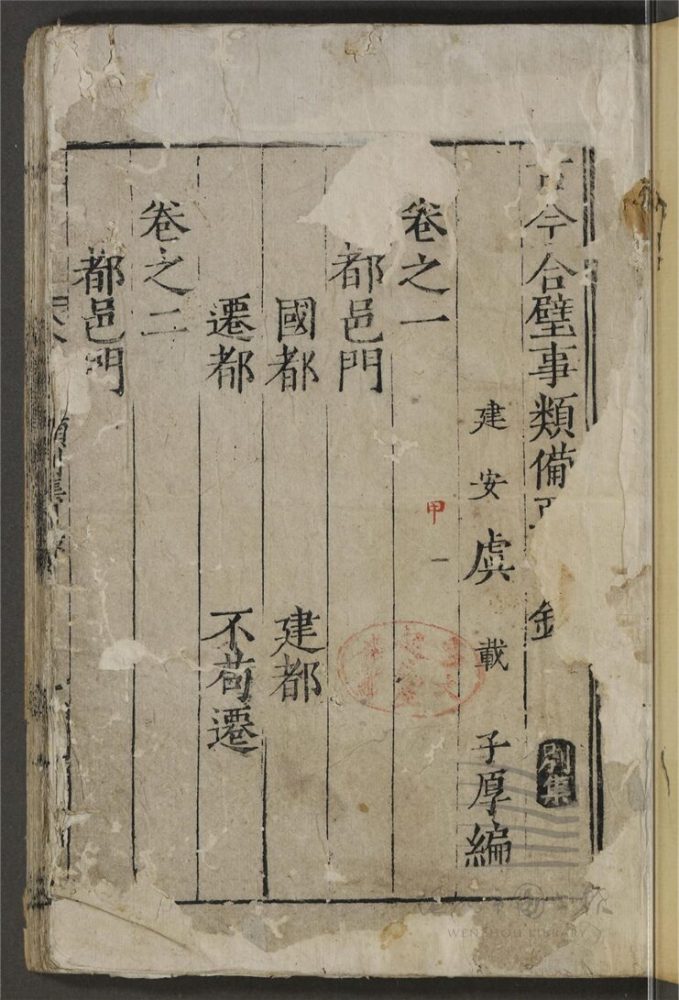 今合璧事類備
別集
建安虞載子厚編
甲一
卷之一
都邑門
國都 建都
遷都 不苟遷
卷之二
都邑門
WENZHOU LIBRARY